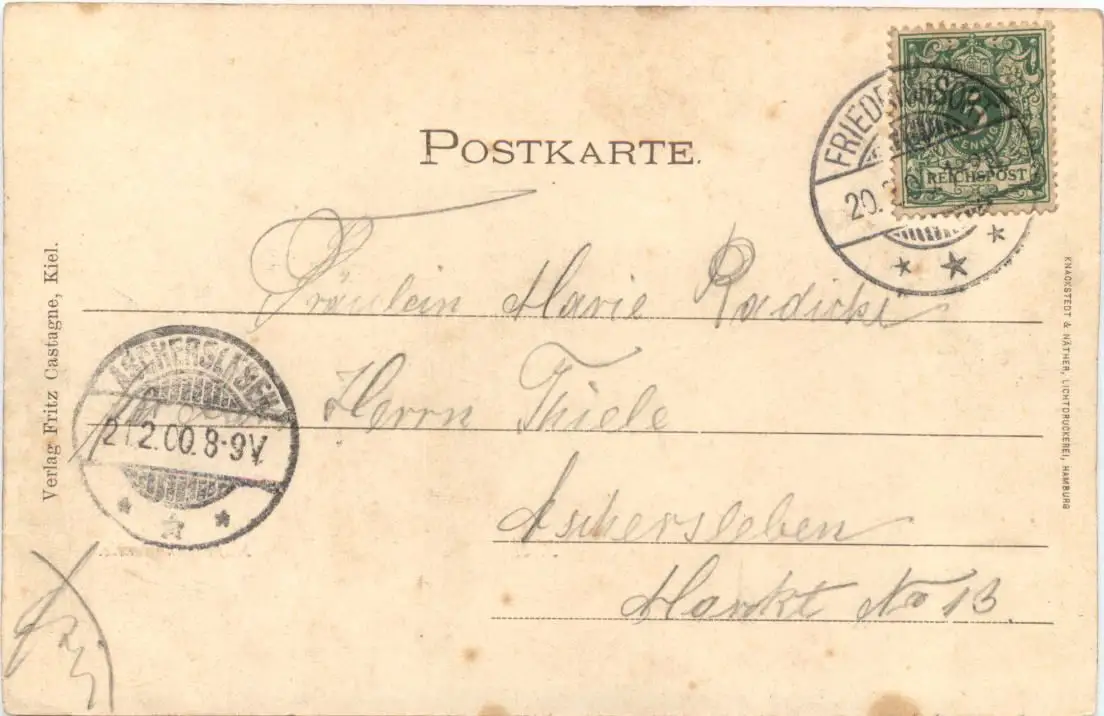 POSTKARTE.
FRIEDRICHSORT
20.
5
PFENNIG
REICHSPOST
Fräulein Marie Radicke
Herrn Thiele
Aschersleben
Markt No 13
ASCHERSLEBEN
21.2.00.8-9V.
Verlag Fritz Castagne, Kiel.
KNACKSTEDT & NÄTHER, LICHTDRUCKEREI, HAMBURG